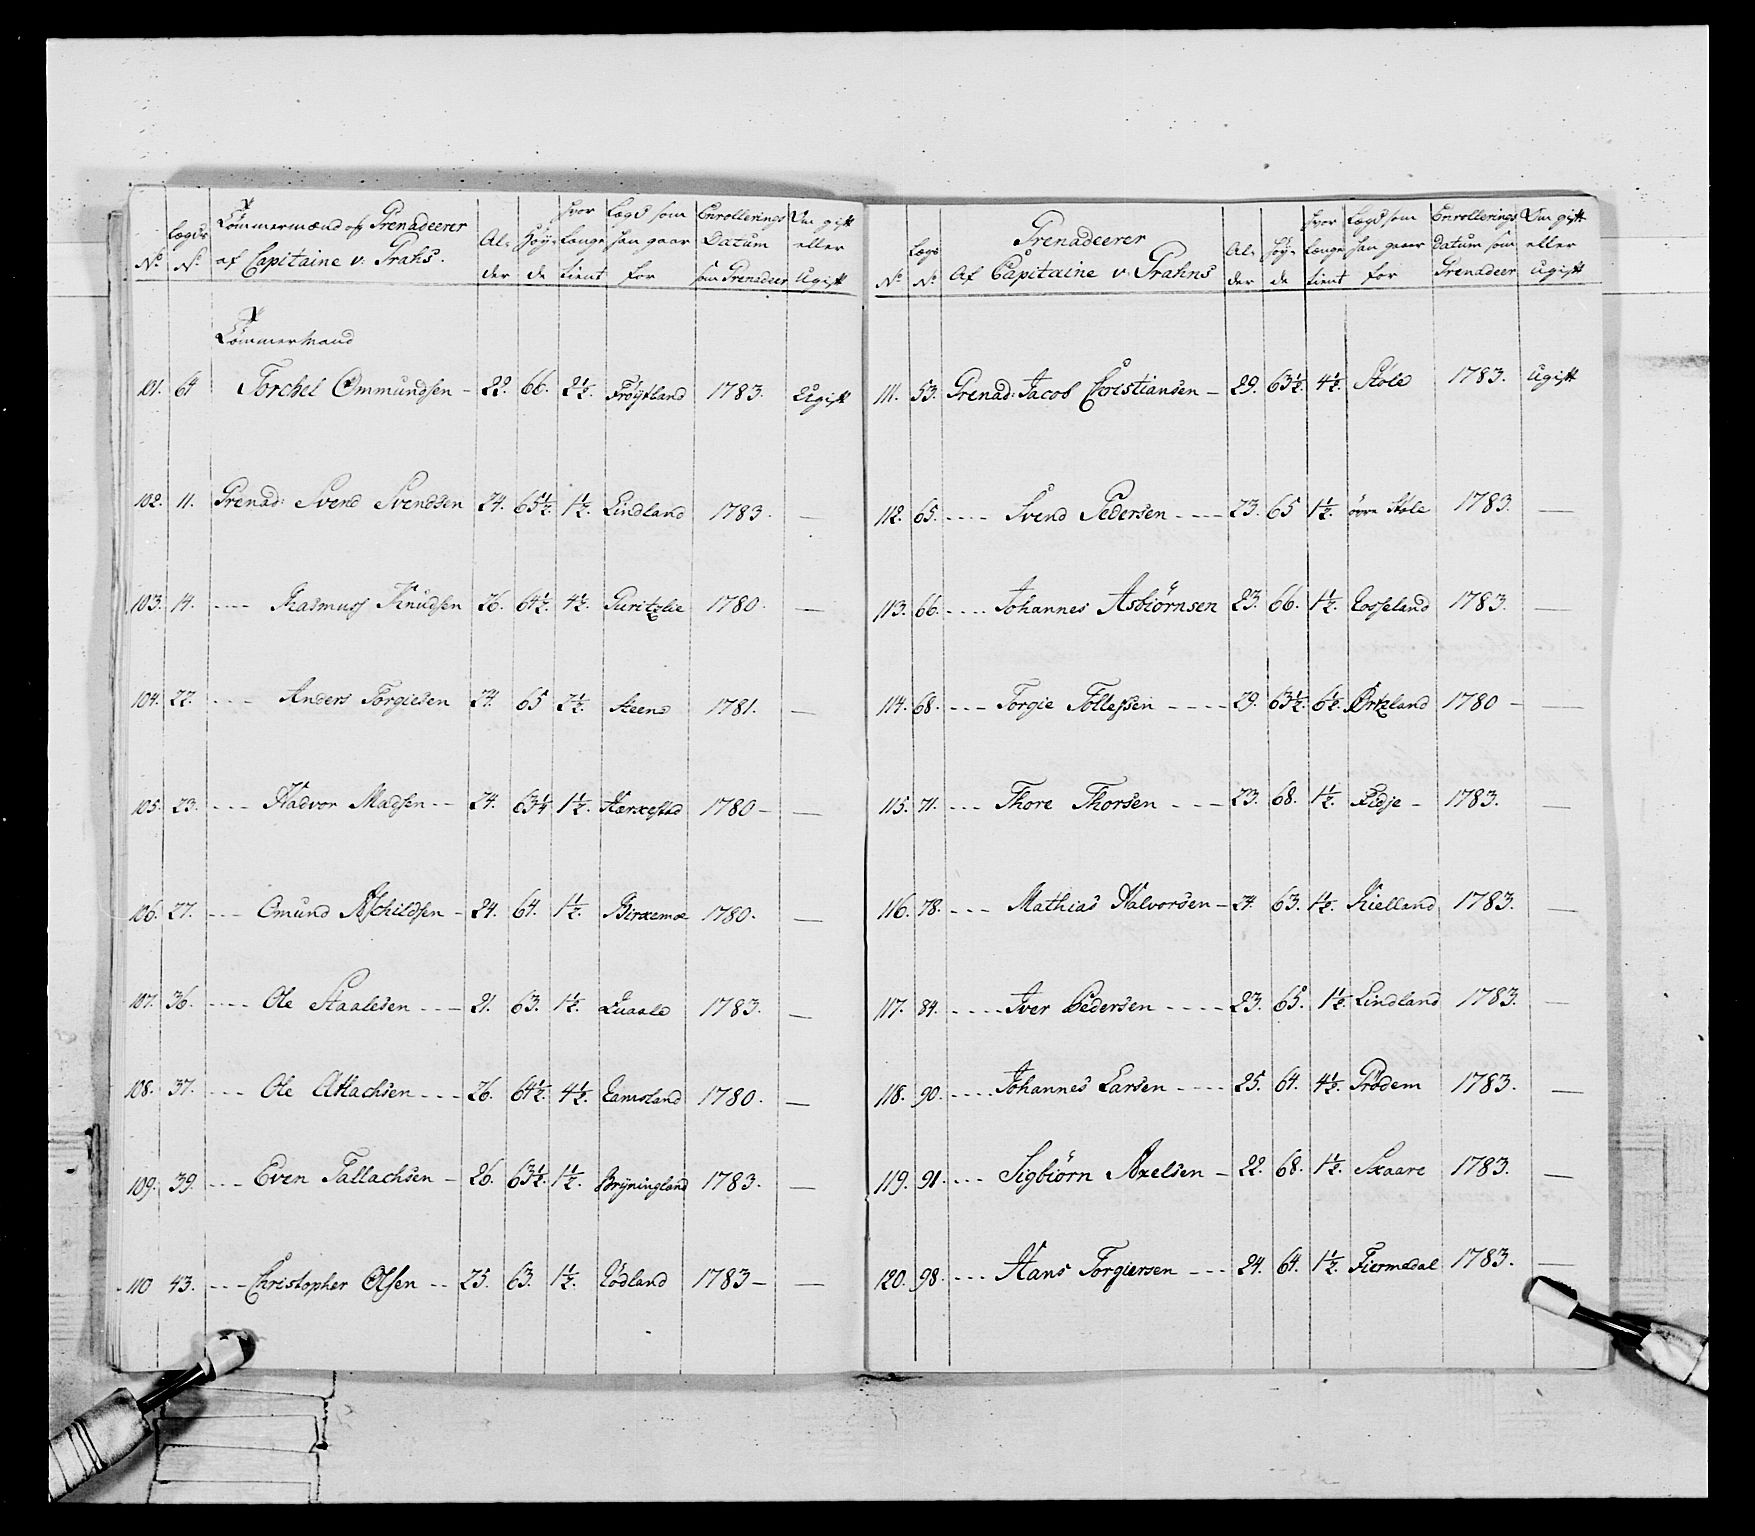 No. Lægds No. Tømmermænd og Grenadeerer af Capitaine v: Grahs. Al- der Høy- de Hvor Længe tient Lægd som han gaar for Enrollerings Datum som Grenadeer Om gift eller Ugift
Tømmermand
101. 64 Torchel Ommundsen - 22. 66. 2½. Frøÿtland 1783. Ugift
102. 11. Grenad: Svend Svendsen 24. 65½. 1½. Lindland 1783. —
103. 14. ---- Rasmuss Knudsen 26. 64½. 4½. Guritzlie 1780. —
104. 22. ---- Anders Torgiesen 24. 65 2½. Steend 1781. —
105. 23. ---- Hadvor Madsen -- 24. 63¼ 1½. Hærxestad 1780 - —
106. 27. ---- Omund Aschildsen - 24. 64. 1½. Birxemoe 1780. —
107. 36. ---- Ole Staalesen --- 21. 63. 1½. 1783. —
108. 37. ---- Ole Atlachsen --- 26. 64½. 4½. 1780. —
109. 39. ---- Even Tallachsen - 26. 63½. 1½. Brÿningland 1783. —
110 43. ---- Christopher Olsen -- 25. 63. 1½. Rødland 1783 - —
No. Lægs No. Grenadeerer Af Capitaine v: Grahns Al- der Høy- de Hvor Længe tient Lægd som han gaar for Enrollerings Datum som Grenadeer Om gift eller Ugift
111. 53. Grenad: Jacob Christiansen - 29. 63½. 4½. Støle 1783. Ugift
112. 65. ---- Svend Pedersen ---- 23. 65 1½. øvre Støle 1783. —
113. 66. ---- Johannes Asbiørnsen 23. 66. 1½. Rosseland 1783. —
114. 68. ---- Torgie Tollefsen ---- 29. 63½. 6½. Ørtzland 1780 - —
115. 71. --- Thore Thorsen --- 23. 68. 1½. Eidje - 1783. —
116. 78. ---- Mathias Halvorsen - 24. 63. 1½. Kielland 1783. —
117. 84. ---- Iver Pedersen ---- 23. 65. 1½ Lindland 1783. —
118. 90. ---- Johannes Larsen ---- 25. 64. 4½. Grødem 1783. —
119. 91. --- Sigbiørn Axelsen - 22. 68. 1½. Sxaare 1783. —
120. 98. ---- Hans Torgiersen --- 24. 64. 1½. Fiermedal 1783. —